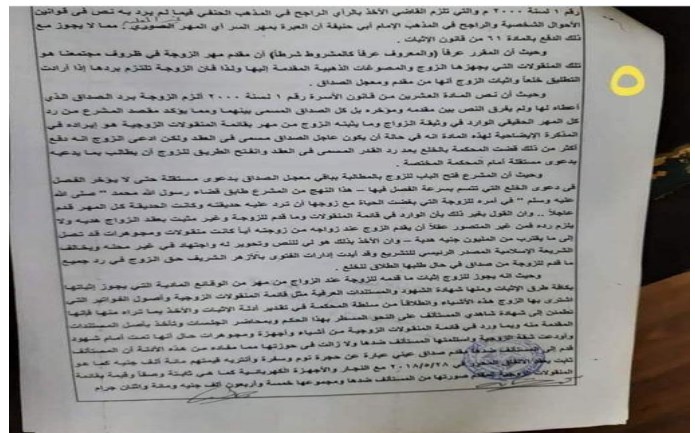 رقم ١ لسنة ٢٠٠٠ م والتي تلزم القاضي الأخذ بالرأي الراجح في المذهب الحنفي فيما لم يرد به نص في قوانين
الأحوال الشخصية والراجح في المذهب الإمام أبي حنيفة أن العبرة بمهر السر أي المهر الصوري . مما لا يجوز مع
ذلك الدفع بالمادة ٦١ من قانون الإثبات .
وحيث أن المقرر عرفاً (والمعروف عرفاً كالمشروط شرطاً) أن مقدم مهر الزوجة في ظروف مجتمعنا هو
تلك المنقولات التي يجهزها الزوج والمصوغات الذهبية المقدمة إليها ولذا فإن الزوجة تلتزم بردها إذا أرادت
التطليق خلعاً وإثبات الزوج أنها من مقدم ومعجل الصداق .
وحيث أن نص المادة العشرين من قانون الأسرة رقم ١ لسنة ٢٠٠٠ ألزم الزوجة برد الصداق الذي
أعطاه لها ولم يفرق النص بين مقدمه ومؤخره بل كل الصداق المسمى بينهما ومما يؤكد مقصد المشرع من رد
كل المهر الحقيقي الوارد في وثيقة الزواج وما يثبته الزوج من مهر بقائمة المنقولات الزوجية هو إيراده في
المذكرة الإيضاحية لهذه المادة انه في حالة أن يكون عاجل الصداق مسمى في العقد ولكن ادعى الزوج انه دفع
أكثر من ذلك قضت المحكمة بالخلع بعد رد القدر المسمى في العقد وانفتح الطريق للزوج أن يطالب بما يدعيه
بدعوى مستقلة أمام المحكمة المختصة .
وحيث أن المشرع فتح الباب للزوج بالمطالبة بباقي معجل الصداق بدعوى مستقلة حتى لا يؤخر الفصل
في دعوى الخلع التي تتسم بسرعة الفصل فيها – هذا النهج من المشرع طابق قضاء رسول الله محمد " صلى الله
عليه وسلم " في أمره للزوجة التي بغضت الحياة مع زوجها أن ترد عليه حديقته وكانت الحديقة كل المهر قدم
عاجلاً .. وان القول بغير ذلك بأن الوارد في قائمة المنقولات وما قدم للزوجة وغير مثبت بعقد الزواج هديه ولا
يلزم رده فمن غير المتصور عقلاً أن يقدم الزوج عند زواجه من زوجته أياً كانت منقولات ومجوهرات قد تصل
إلى ما يقترب من المليون جنيه هدية – وان الأخذ بذلك هو لي للنص وتحوير له واجتهاد في غير محله ويخالف
الشريعة الإسلامية المصدر الرئيسي للتشريع وقد أيدت إدارات الفتوى بالأزهر الشريف حق الزوج في رد جميع
ما قدم للزوجة من صداق في حال طلبها الطلاق للخلع .
وحيث انه يجوز للزوج إثبات ما قدمه للزوجة عند الزواج من مهر من الوقائع المادية التي يجوز إثباتها
بكافة طرق الإثبات ومنها شهادة الشهود والمستندات العرفية مثل قائمة المنقولات الزوجية وأصول الفواتير التي
اشترى بها الزوج هذه الأشياء وانطلاقاً من سلطة المحكمة في تقدير أدلة الإثبات والأخذ بما تراه منها فإنها
تطمئن إلى شهادة شاهدي المستأنف على النحو المسطر بهذا الحكم وبمحاضر الجلسات وتأخذ بأصل المستندات
المقدمة منه وبما ورد في قائمة المنقولات الزوجية من أشياء وأجهزة ومجوهرات حال أنها تمت أمام شهود
وأودعت شقة الزوجية واستلمتها المستأنف ضدها ولا زالت في حوزتها مما مفاده من هذه الأدلة أن المستأنف
قدم إلى المستأنف ضدها مقدم صداق عيني عبارة عن حجرة نوم وسفرة وأنتريه قيمتهم مائة ألف جنيه كما هو
ثابت بعقد الاتفاق المحرر في ٢٠١٨/٥/٢٨ مع النجار والأجهزة الكهربائية كما هي ثابتة وصفاً وقيمة بقائمة
المنقولات الزوجية المقدم صورتها من المستأنف ضدها ومجموعها خمسة وأربعون ألف جنيه ومائة واثنان جرام